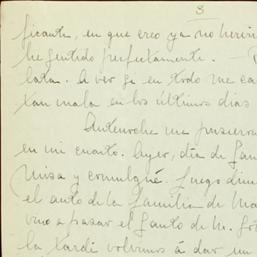 3
ficante, en que creo ya no
he sentido perfectamente. —
lata. A ver si en todo me
tan mala en los últimos días
Anteноche me pusieron
en mi cuarto. Ayer, día de
misa y comulgué. Luego
el auto de la familia de
vino a pasar el santo de M.
la tarde volvimos á dar un